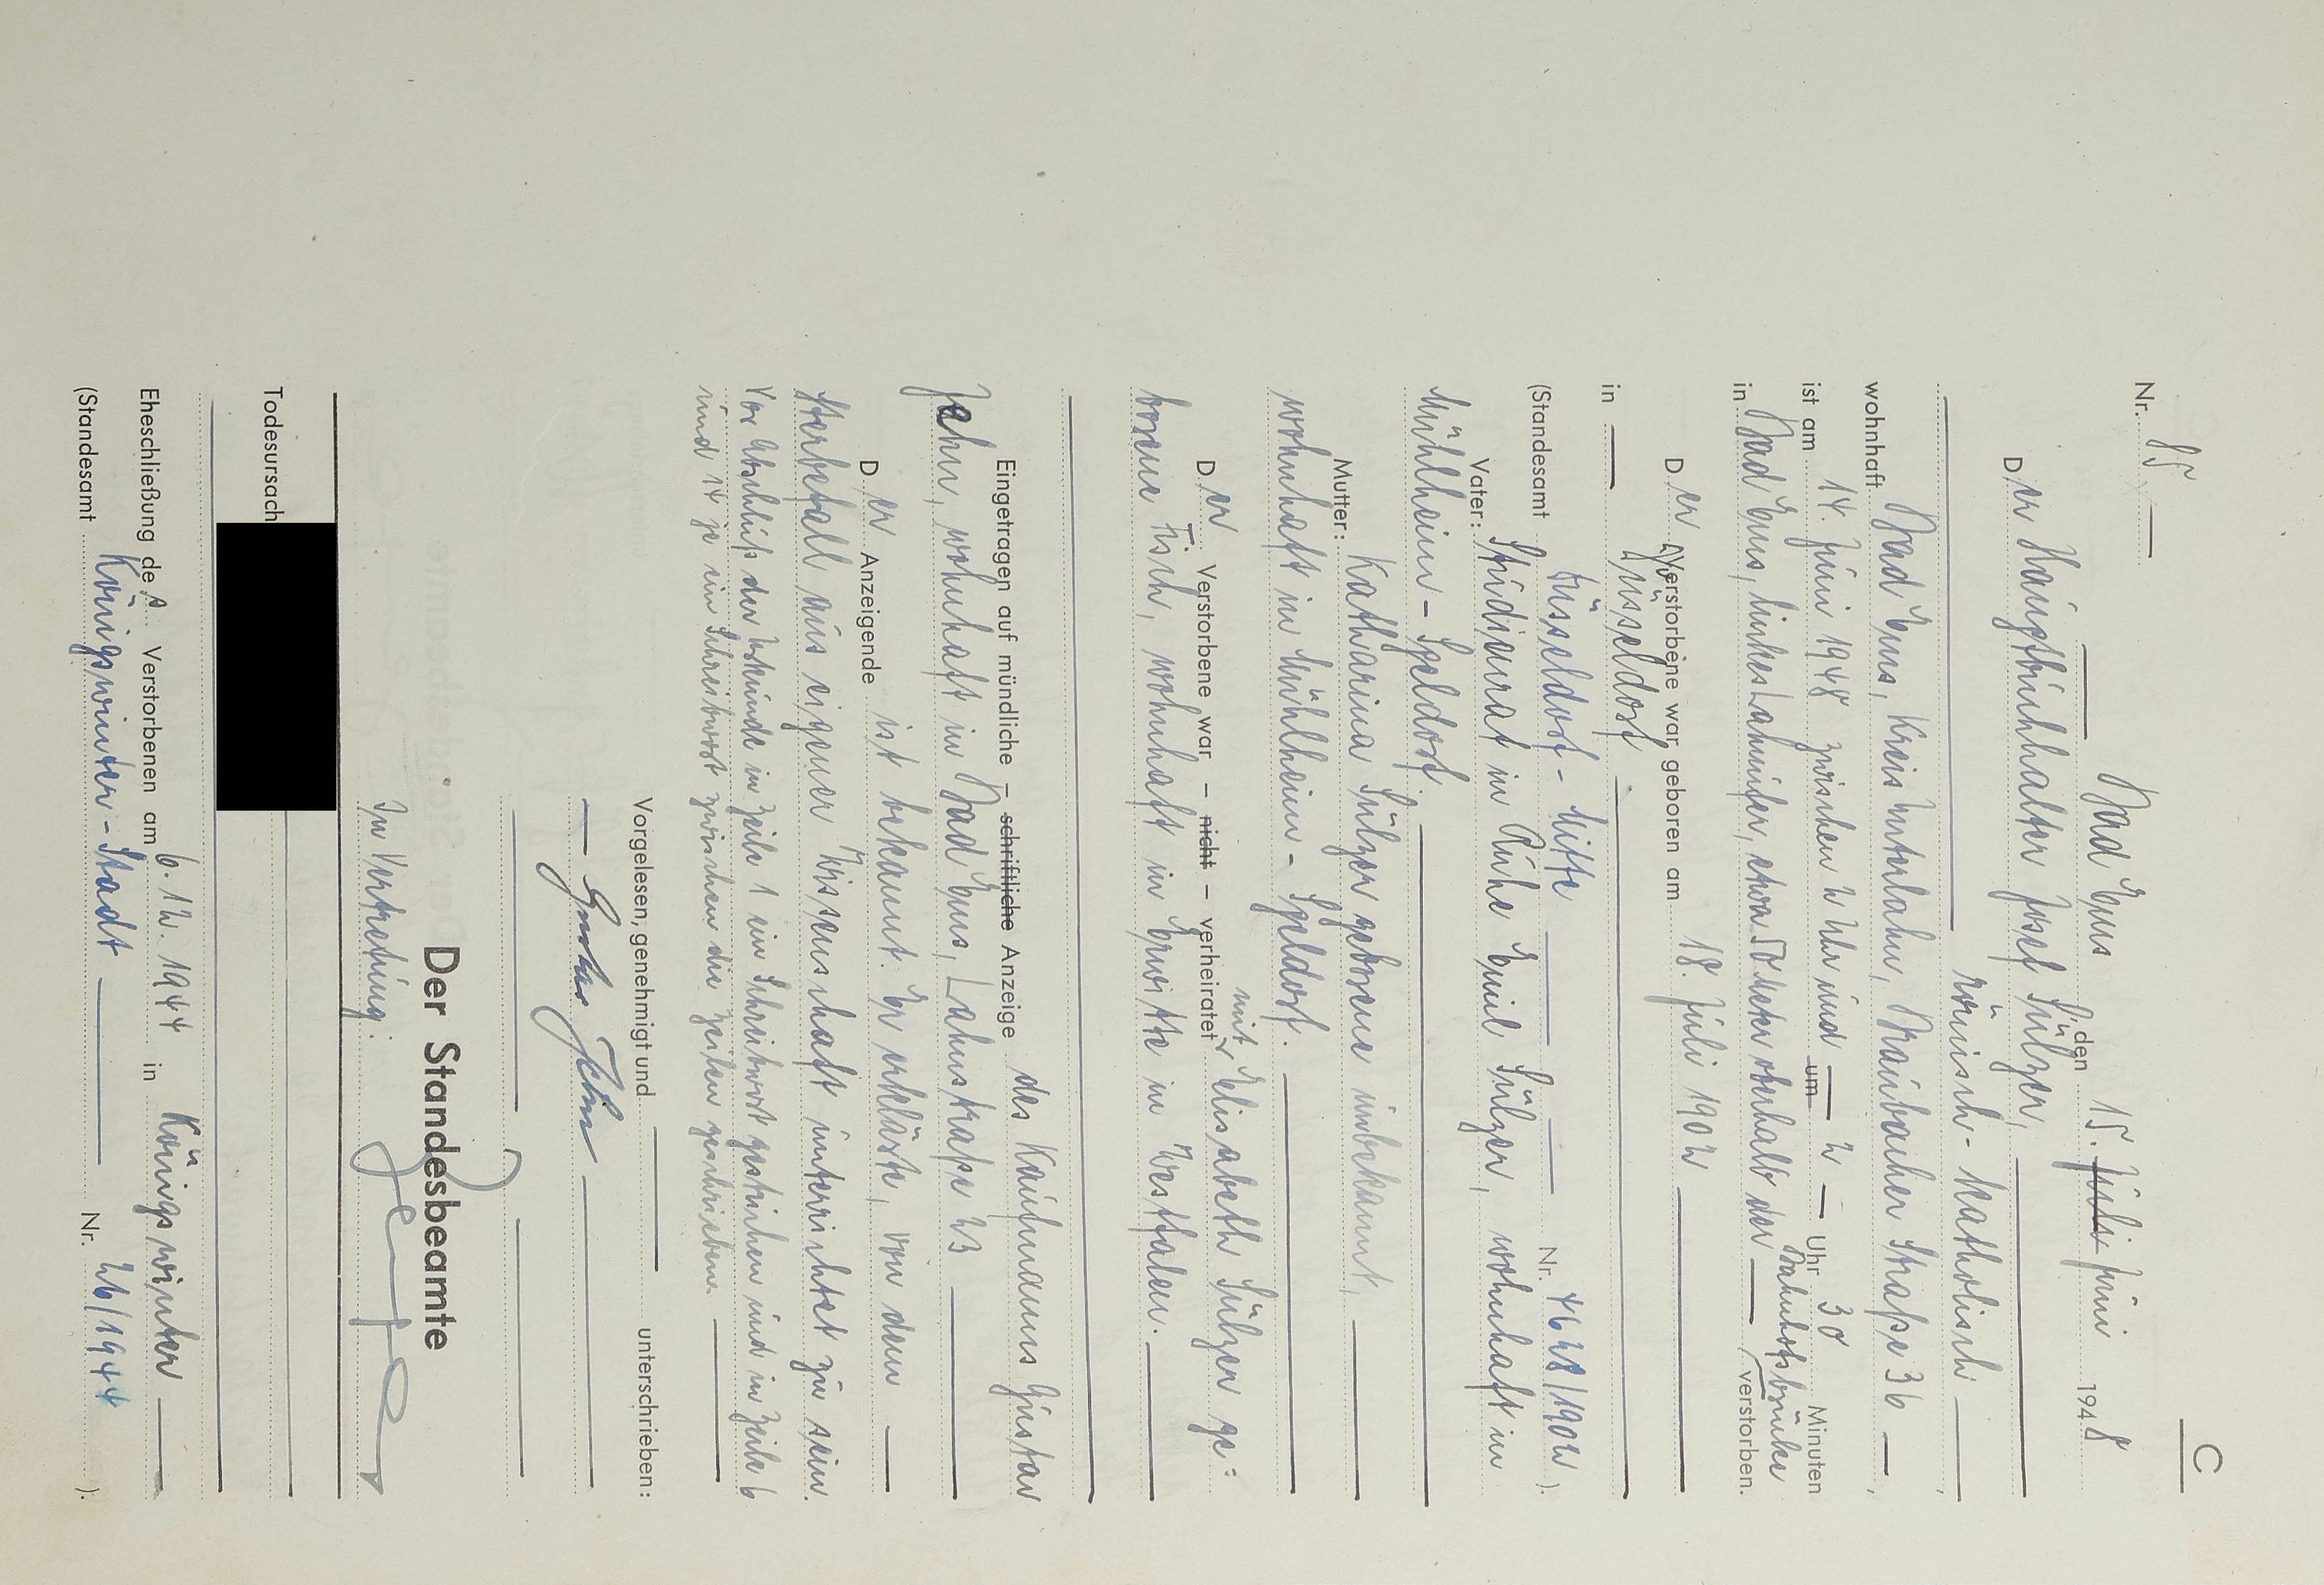 C
Nr. 85
Bad Ems, den 15. Juli Juni 1948
Der Hauptbuchhalter Josef Sülzer,
römisch-katholisch
wohnhaft Bad Ems, Kreis Unterlahn, Braubacher Straße 36,
ist am 14. Juni 1948 zwischen 2 Uhr und um 2 Uhr 30 Minuten
in Bad Ems, linkes Lahnufer, etwa 50 Meter oberhalb der Bahnhofsbrücke verstorben.
Der Verstorbene war geboren am 18. Juli 1902
in Düsseldorf
(Standesamt Düsseldorf-Mitte Nr. 4628/1902).
Vater: Studienrat in Ruhe Emil Sülzer, wohnhaft in
Mühlheim-Speldorf.
Mutter: Katharina Sülzer geborene unbekannt,
wohnhaft in Mühlheim-Speldorf.
Der Verstorbene war – nicht – verheiratet mit Elisabeth Sülzer ge=
borene Tisch, wohnhaft in Erwitte in Westfalen.
Eingetragen auf mündliche – schriftliche Anzeige des Kaufmanns Gustav
Jehn, wohnhaft in Bad Ems, Lahnstraße 23
Der Anzeigende ist bekannt. Er erklärte, von dem
Sterbefall aus eigener Wissenschaft unterrichtet zu sein.
Vor Abschluß der Urkunde in Zeile 1 ein Schreibwort gestrichen und in Zeile 6
und 14 je ein Schreibwort zwischen die Zeilen geschrieben.
Vorgelesen, genehmigt und unterschrieben:
Gustav Jehn
Der Standesbeamte
In Vertretung:
Todesursach
Eheschließung des Verstorbenen am 6. 12. 1944 in Königswinter
(Standesamt Königswinter-Stadt Nr. 26/1944).